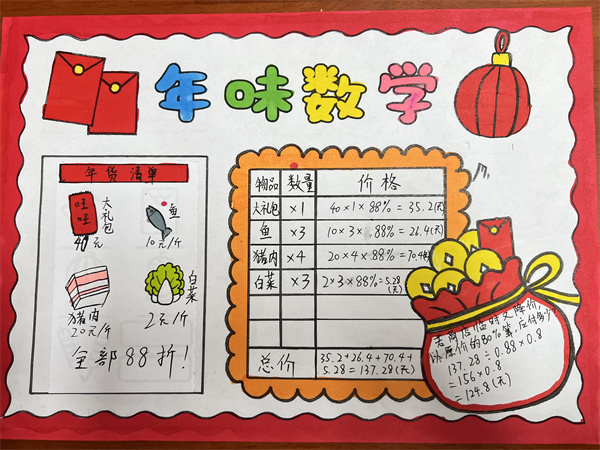 年味数学
年货清单
旺旺
大礼包
40元
鱼
10元/斤
猪肉
20元/斤
白菜
2元/斤
全部88折!
物品 数量 价格
大礼包 ×1 40×1×88%=35.2(元)
鱼 ×3 10×3×88%=26.4(元)
猪肉 ×4 20×4×88%=70.4(元)
白菜 ×3 2×3×88%=5.28(元)
总价 35.2+26.4+70.4+
5.28=137.28(元)
若商店临时又降价,
以原价的80%售,应付多少?
137.28÷0.88×0.8
=156×0.8
=124.8(元)